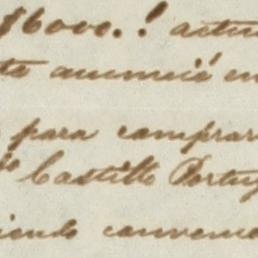 $6000.! actu
te anunció en
para comprar
jo Castillo Portug
iendo convenie